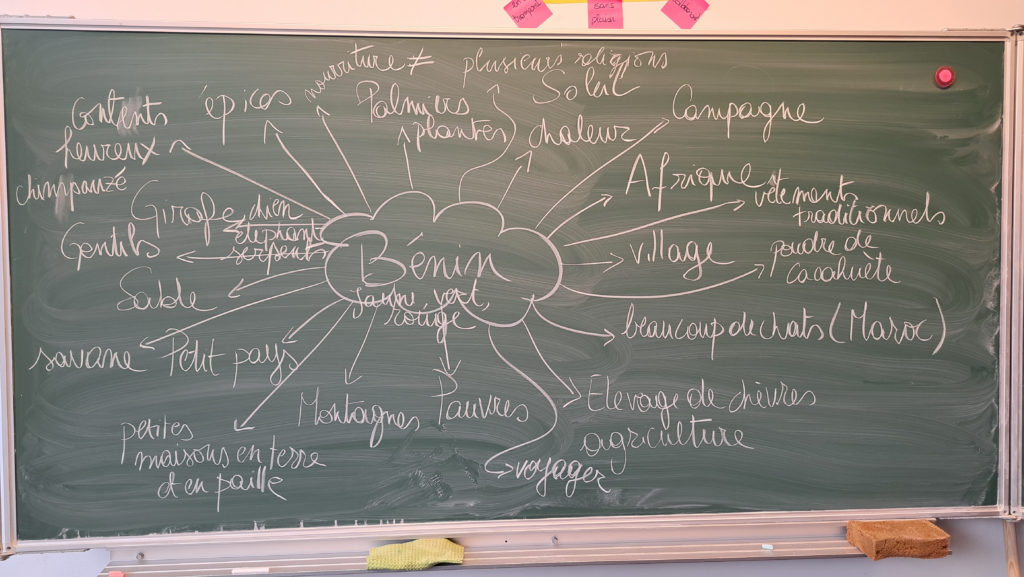 sans
nourriture ≠
plusieurs religions
Soleil
Contents
heureux
épices
Palmiers
plantes
chaleur
Campagne
chimpanzé
Girafe chien
éléphant
serpents
Gentils
Afrique
vêtements
traditionnels
village
poudre de
cacahuète
Bénin
jaune, vert,
rouge
Sable
savane
Petit pays
beaucoup de chats (Maroc)
Montagnes
Pauvres
Elevage de chèvres
agriculture
petites
maisons en terre
et en paille
voyager